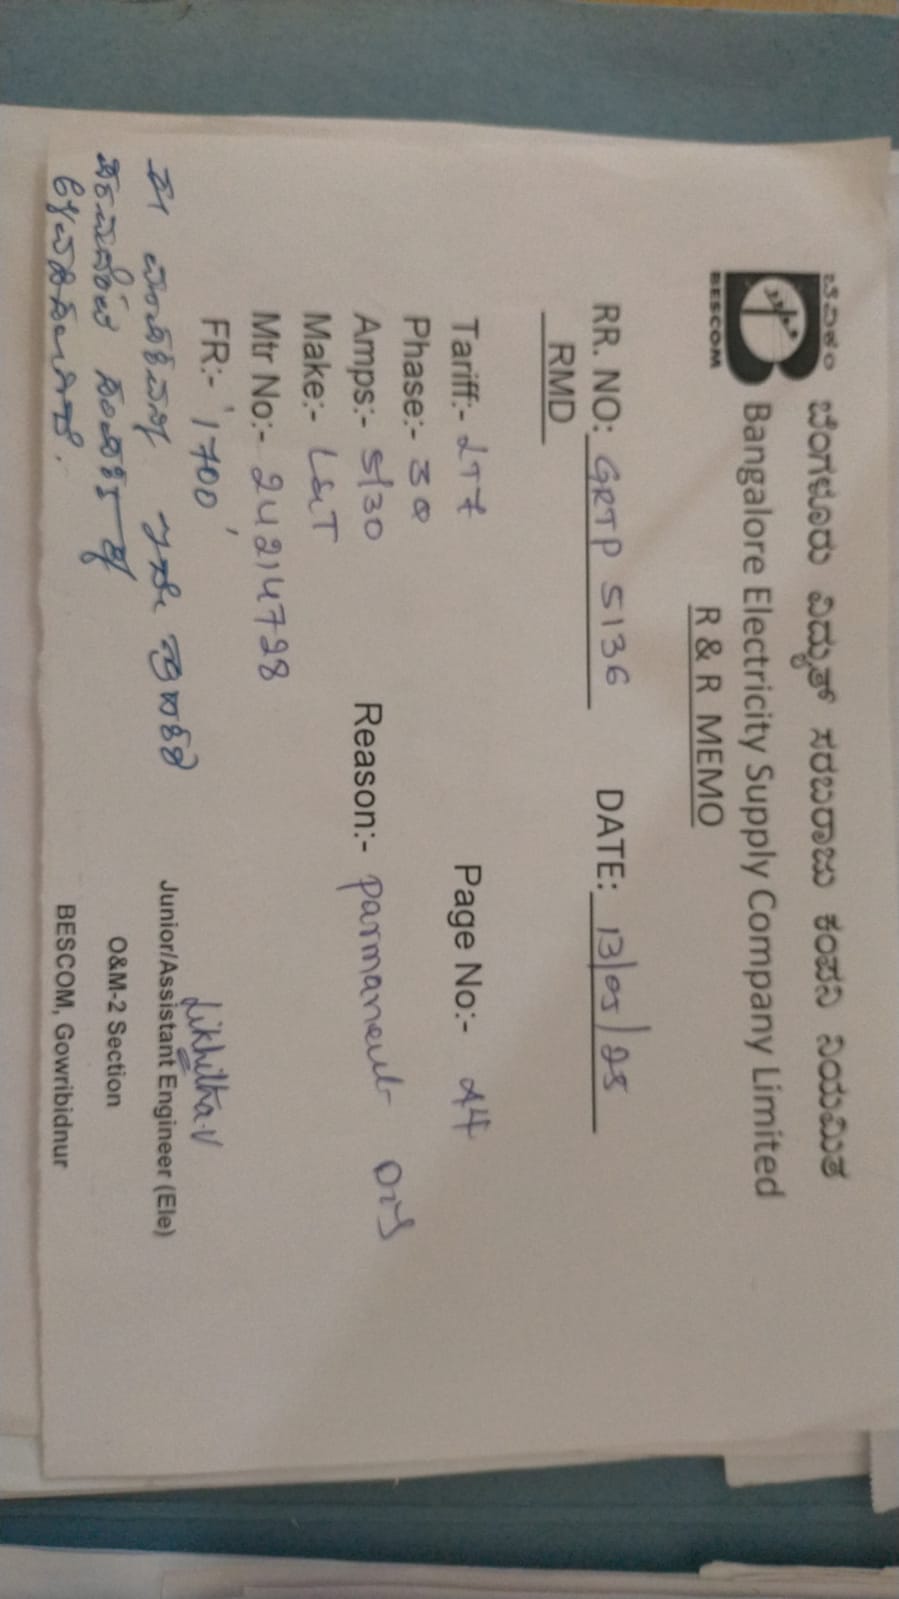 ಬೆವಿಕಂ ಬೆಂಗಳೂರು ವಿದ್ಯುತ್ ಸರಬರಾಜು ಕಂಪನಿ ನಿಯಮಿತ
BESCOM Bangalore Electricity Supply Company Limited
R & R MEMO
RR. NO: GRTP 5136 DATE: 13/05/25
RMD
Tariff:- LT7 Page No:- 44
Phase:- 3Φ
Amps:- 5/30 Reason:- parmanent Dis
Make:- L&T
Mtr No:- 24214728
FR:- 1700
Likhitha.V
Junior/Assistant Engineer (Ele)
O&M-2 Section
BESCOM, Gowribidnur